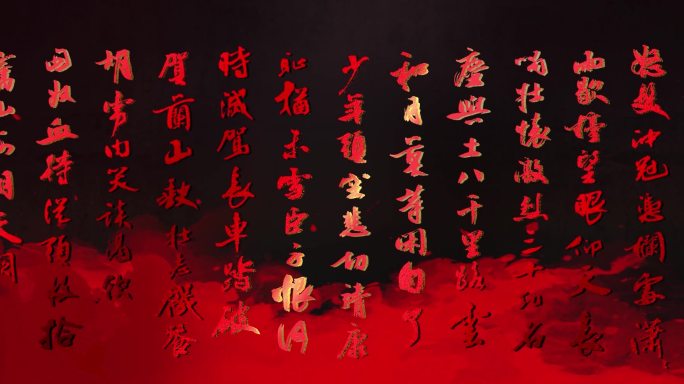 怒髮沖冠憑闌處瀟
雨歇擡望眼仰天長
嘯壯懷激烈三十功名
塵與土八千里路雲
和月莫等閒白了
少年頭空悲切靖康
恥猶未雪臣子恨何
時滅駕長車踏破
賀蘭山缺壯志饑餐
胡虜肉笑談渴飲
匈奴血待從頭收拾
舊山河朝天闕